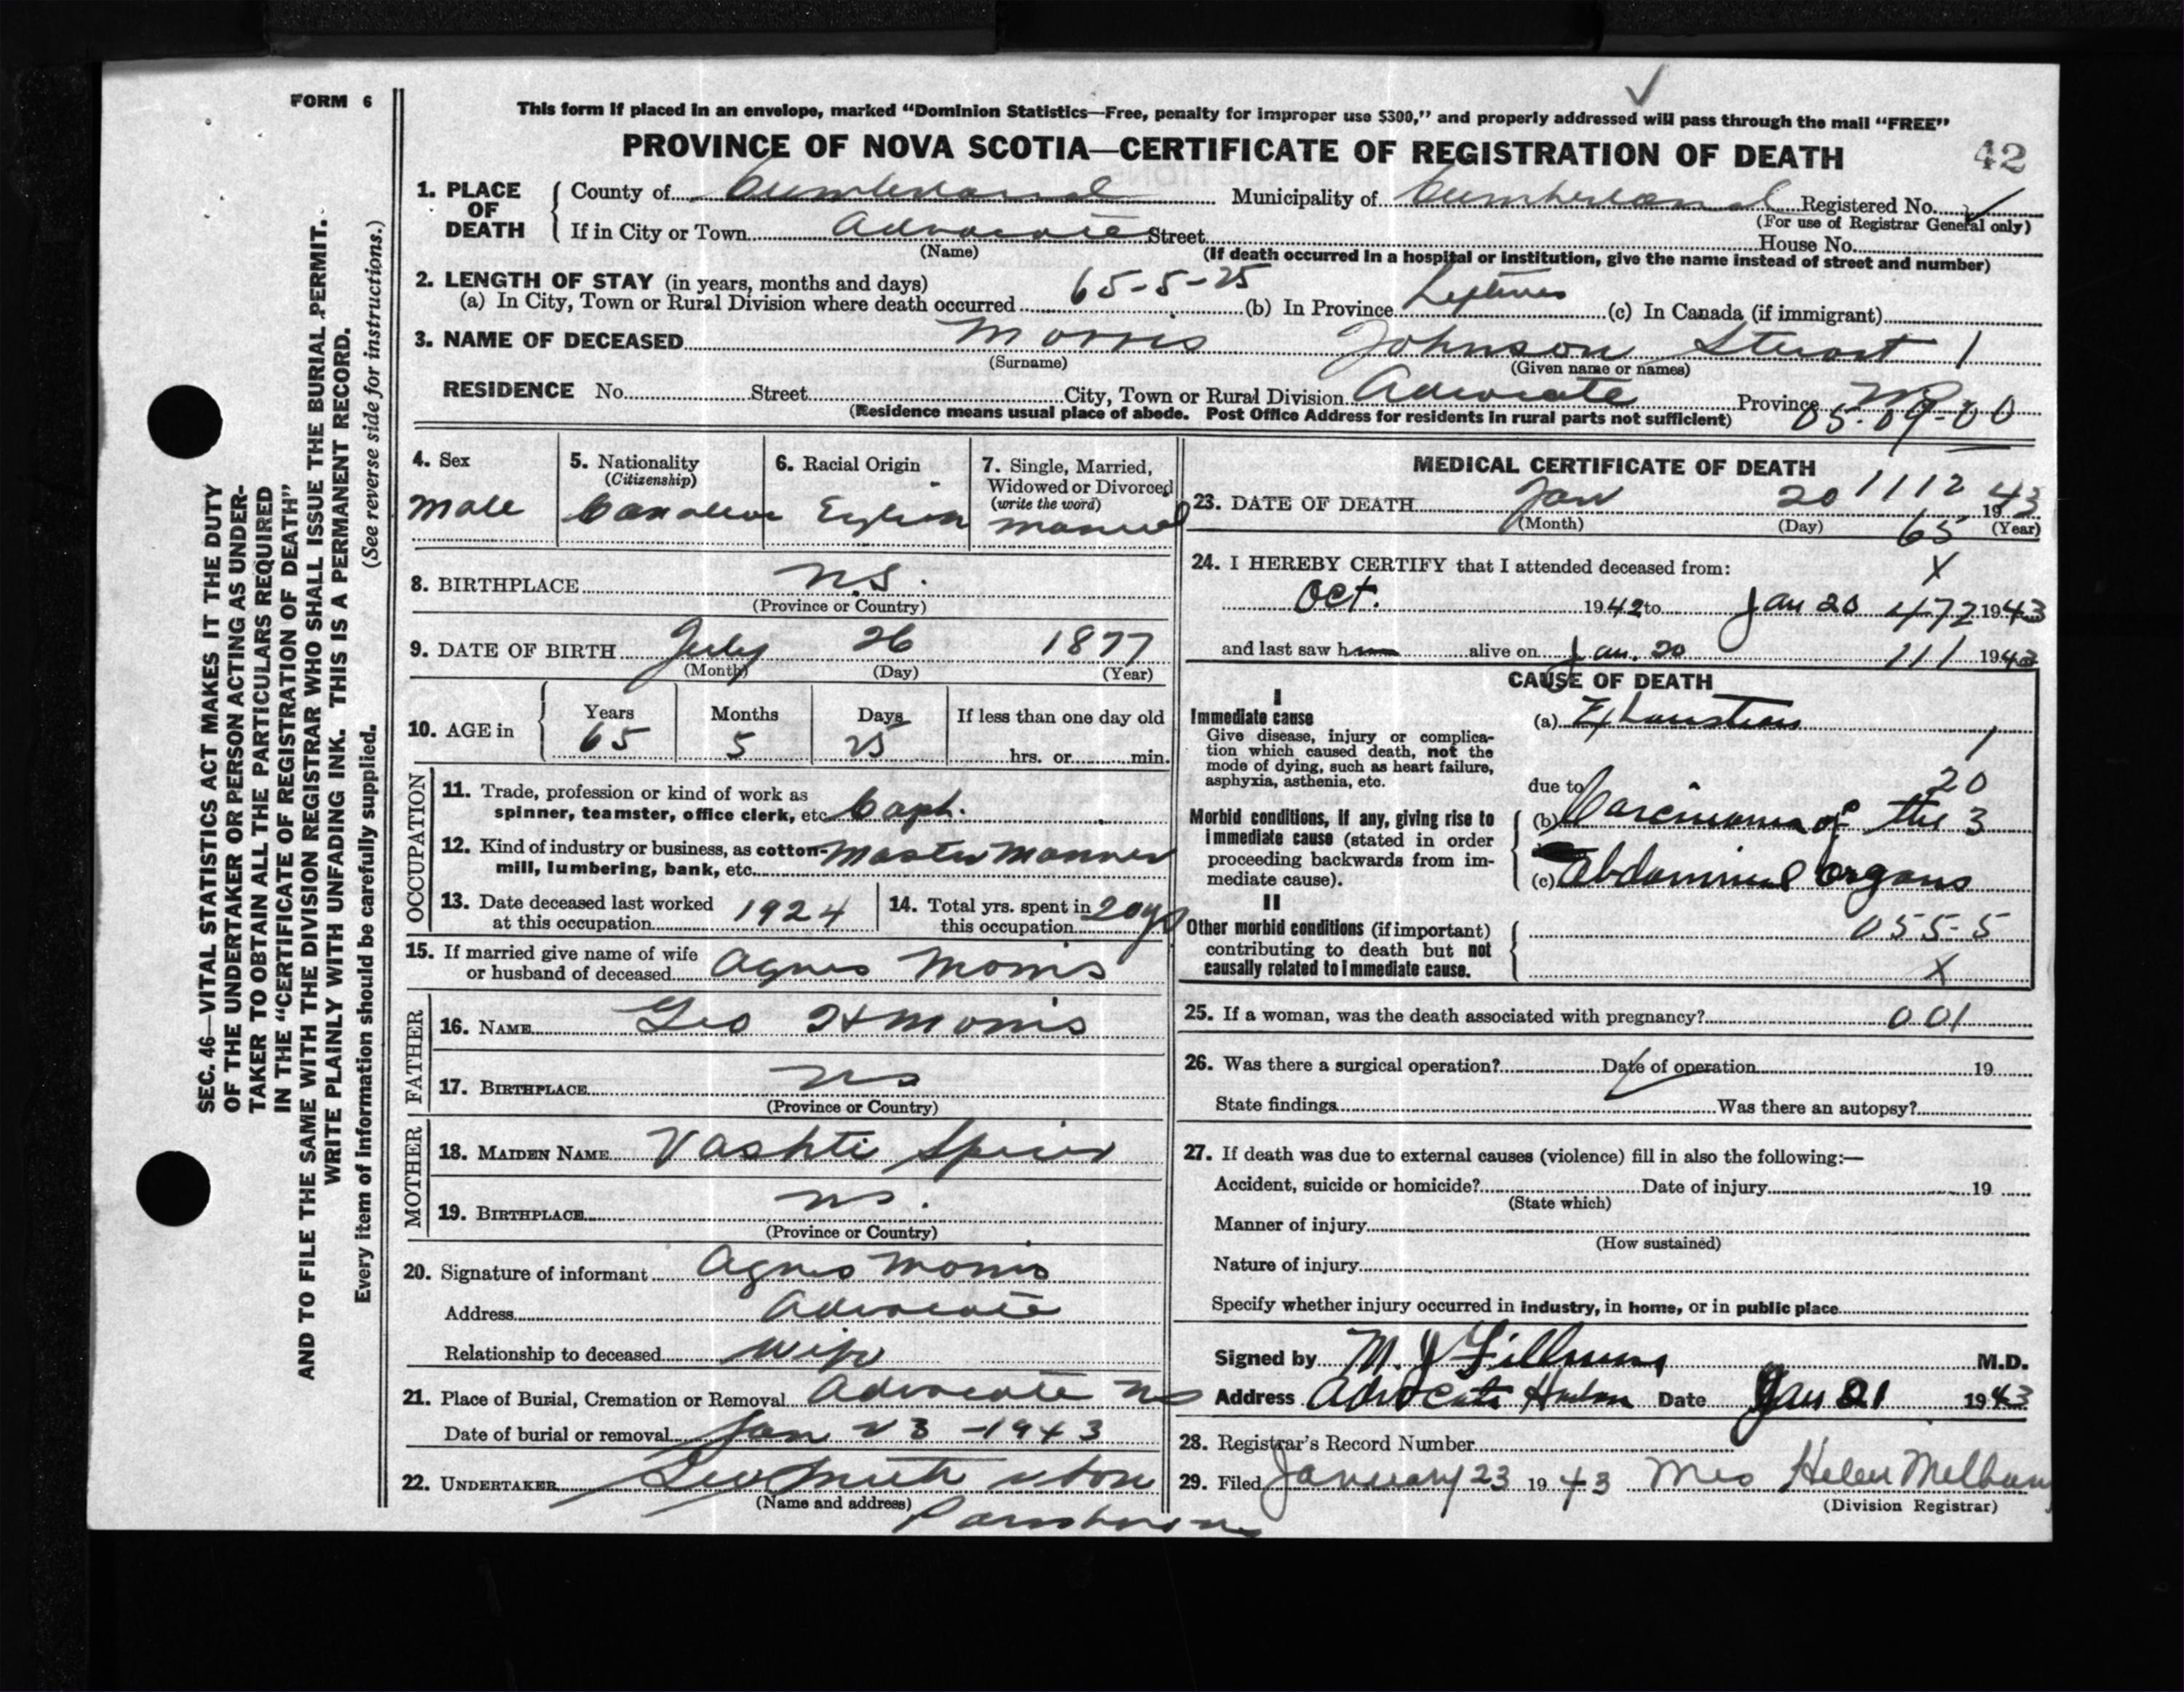 FORM 6
This form if placed in an envelope, marked "Dominion Statistics—Free, penalty for improper use $300," and properly addressed will pass through the mail "FREE"
PROVINCE OF NOVA SCOTIA—CERTIFICATE OF REGISTRATION OF DEATH
42
SEC. 46—VITAL STATISTICS ACT MAKES IT THE DUTY
OF THE UNDERTAKER OR PERSON ACTING AS UNDER-
TAKER TO OBTAIN ALL THE PARTICULARS REQUIRED
IN THE "CERTIFICATE OF REGISTRATION OF DEATH"
AND TO FILE THE SAME WITH THE DIVISION REGISTRAR WHO SHALL ISSUE THE BURIAL PERMIT.
WRITE PLAINLY WITH UNFADING INK. THIS IS A PERMANENT RECORD.
Every item of information should be carefully supplied. (See reverse side for instructions.)
1. PLACE OF DEATH
County of Cumberland Municipality of Cumberland Registered No.
(For use of Registrar General only)
If in City or Town Advocate Street House No.
(Name)
(If death occurred in a hospital or institution, give the name instead of street and number)
2. LENGTH OF STAY (in years, months and days)
(a) In City, Town or Rural Division where death occurred 65-5-25 (b) In Province Lifetime (c) In Canada (if immigrant)
3. NAME OF DECEASED Morris Johnson Stuart 1
(Surname) (Given name or names)
RESIDENCE No. Street City, Town or Rural Division Advocate Province NS
(Residence means usual place of abode. Post Office Address for residents in rural parts not sufficient) 05-09-00
4. Sex
Male
5. Nationality
(Citizenship)
Canadian
6. Racial Origin
English
7. Single, Married,
Widowed or Divorced
(write the word)
Married
8. BIRTHPLACE N.S.
(Province or Country)
9. DATE OF BIRTH July 26 1877
(Month) (Day) (Year)
10. AGE in
Years Months Days If less than one day old
65 5 25 hrs. or min.
OCCUPATION
11. Trade, profession or kind of work as
spinner, teamster, office clerk, etc. Capt.
12. Kind of industry or business, as cotton- Master Mariner
mill, lumbering, bank, etc.
13. Date deceased last worked
at this occupation 1924
14. Total yrs. spent in
this occupation 20 yrs
15. If married give name of wife
or husband of deceased Agnes Morris
FATHER
16. NAME Geo H Morris
17. BIRTHPLACE NS
(Province or Country)
MOTHER
18. MAIDEN NAME Vashti Spicer
19. BIRTHPLACE NS.
(Province or Country)
20. Signature of informant Agnes Morris
Address Advocate
Relationship to deceased Wife
21. Place of Burial, Cremation or Removal Advocate NS
Date of burial or removal Jan 23-1943
22. UNDERTAKER Geo
(Name and address)
Parrsboro NS
MEDICAL CERTIFICATE OF DEATH
1112
23. DATE OF DEATH Jan 20 1943
(Month) (Day) (Year)
65
24. I HEREBY CERTIFY that I attended deceased from: X
Oct. 1942 to Jan 20 472 1943
and last saw him alive on Jan. 20 111 1943
CAUSE OF DEATH
I
Immediate cause
Give disease, injury or complica-
tion which caused death, not the
mode of dying, such as heart failure,
asphyxia, asthenia, etc.
(a) Exhaustion
1
due to 20
Morbid conditions, if any, giving rise to
immediate cause (stated in order
proceeding backwards from im-
mediate cause).
(b) Carcinoma of the 3
(c) Abdominal organs
II
Other morbid conditions (if important)
contributing to death but not
causally related to immediate cause.
055-5
X
25. If a woman, was the death associated with pregnancy? 001
26. Was there a surgical operation? Date of operation 19
State findings Was there an autopsy?
27. If death was due to external causes (violence) fill in also the following:—
Accident, suicide or homicide? Date of injury 19
(State which)
Manner of injury
(How sustained)
Nature of injury
Specify whether injury occurred in industry, in home, or in public place
Signed by M. J Fillmore M.D.
Address Advocate Date Jan 21 1943
28. Registrar's Record Number
29. Filed January 23 1943 Mrs Helen
(Division Registrar)